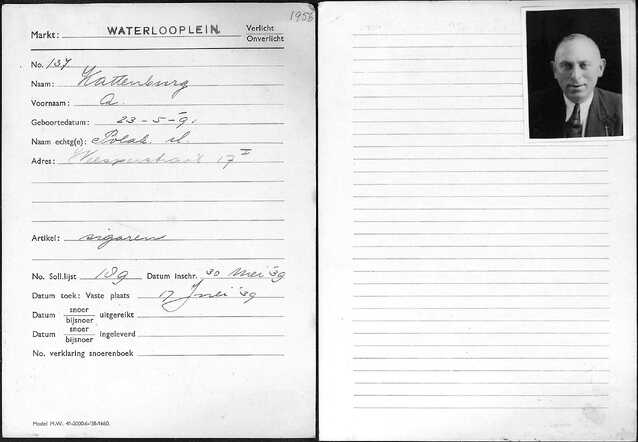 1956
Markt: WATERLOOPLEIN. Verlicht
Onverlicht
No. 137
Naam: Kattenburg
Voornaam: A.
Geboortedatum: 23-5-91.
Naam echtg(e): Polak
Adres: 17 I
Artikel: sigaren
No. Soll.lijst 189 Datum Inschr. 30 Mei '39
Datum toek: Vaste plaats 17 Juni '39
Datum snoer
bijsnoer uitgereikt
Datum snoer
bijsnoer ingeleverd
No. verklaring snoerenboek
Model M.W.